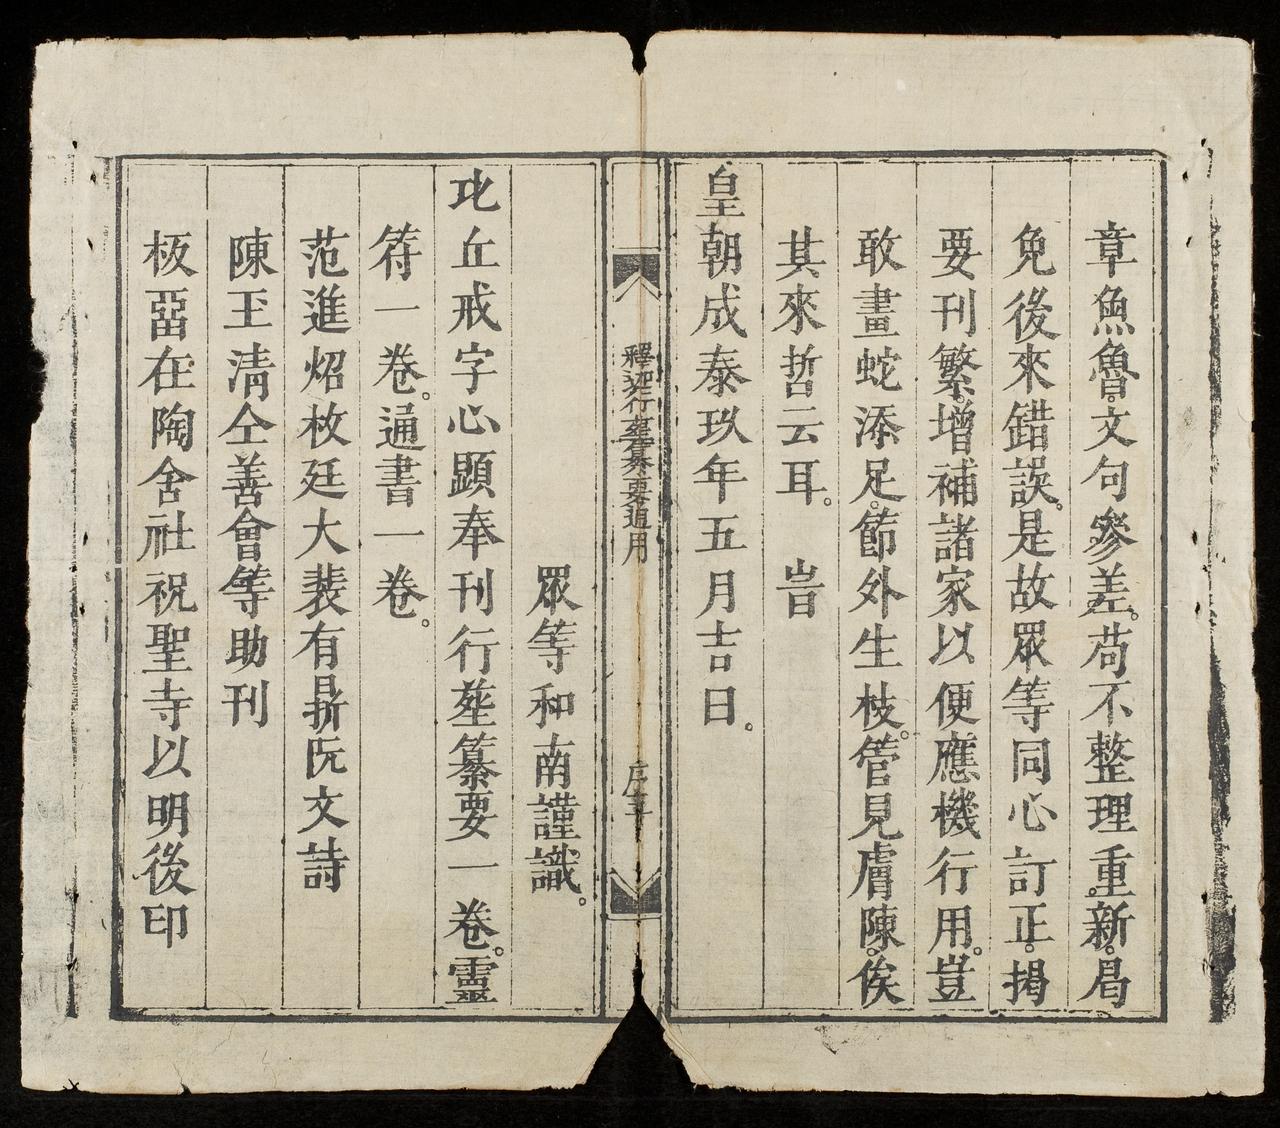 章魚魯文句參差。苟不整理重新。曷
免後來錯誤。是故眾等同心訂正。揭
要刊繁。增補諸家以便應機行用。豈
敢畫蛇添足。節外生枝。管見膚陳。俟
其來哲云耳。 旹
皇朝成泰玖年五月吉日。
釋迦行
纂要通用
序
眾等和南謹識。
比丘戒字心顕奉刊行塟纂要一卷。靈
符一卷。通書一卷。
范進炤枚廷大裴有阮文詩
陳玉清仝善會等助刊
板畱在陶舍社祝聖寺以明後印